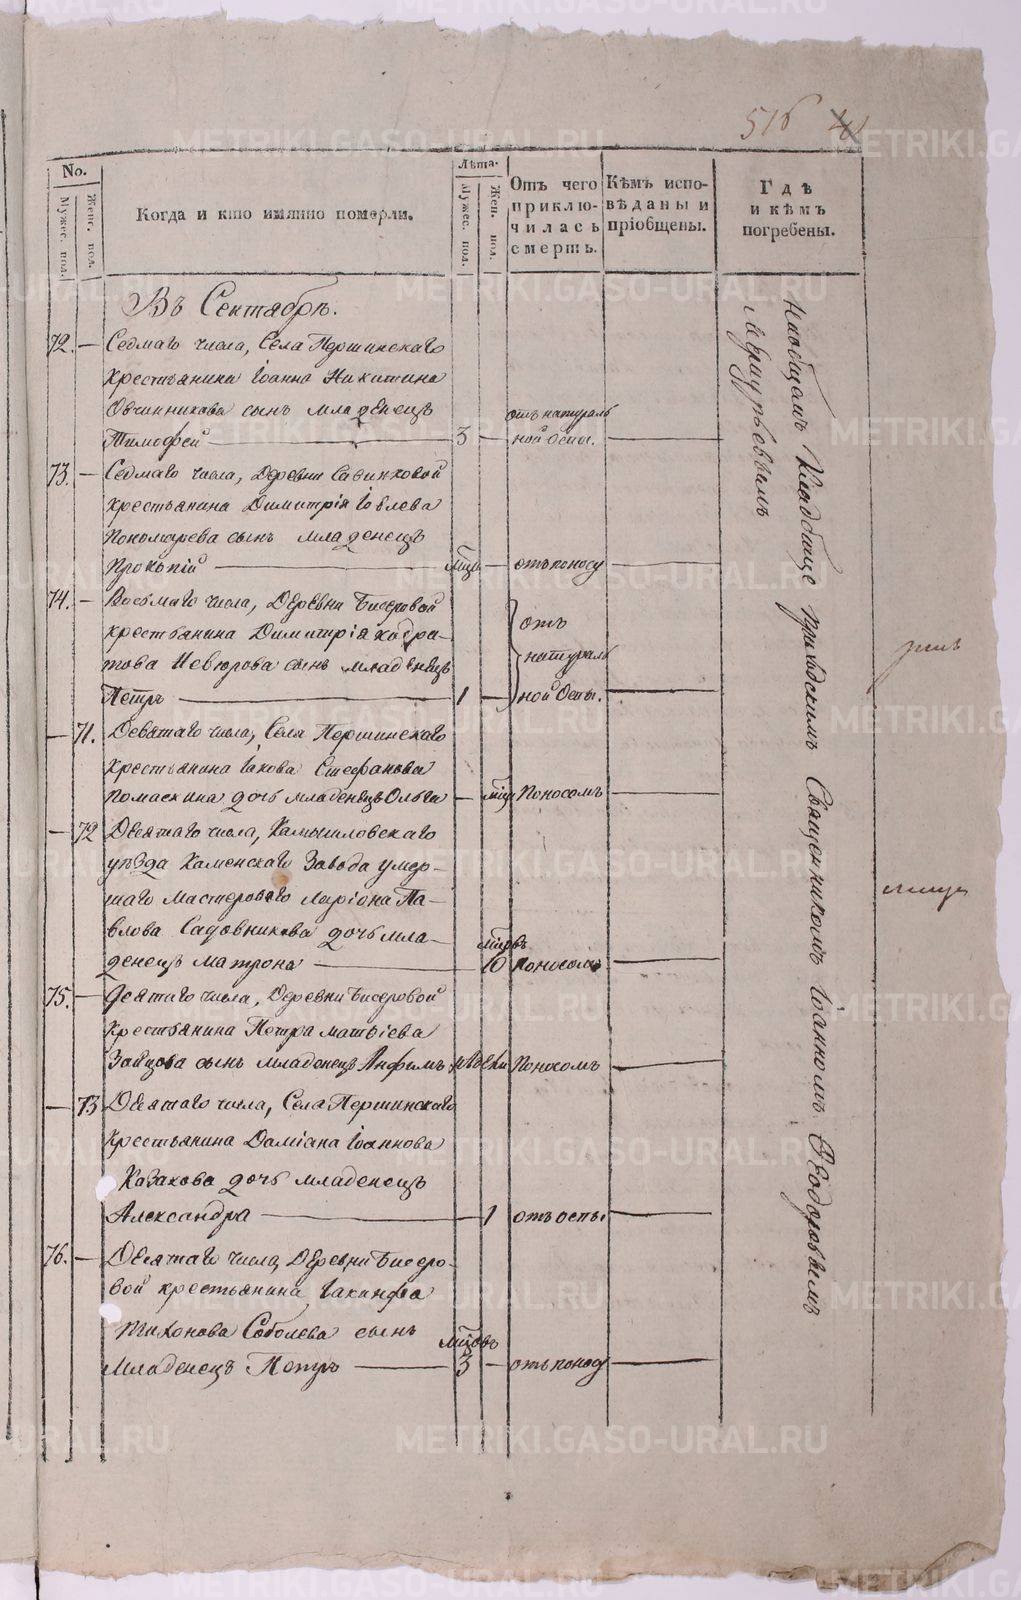 516 41
No.
Мужес. пол.
Женс. пол.
Когда и кто имянно померли.
Лѣта.
Мужес. пол.
Жен. пол.
Отъ чего
приклю-
чилась
смерть.
Кѣмъ испо-
вѣданы и
пріобщены.
Гдѣ
и кѣмъ
погребены.
Въ Сентябрѣ.
72. — Седмаго числа, Села Першинскаго
Крестьянина Іоанна Никитина
Овчинникова сынъ младенецъ отъ натураль
Тимофей — 3 — ной оспы. —
73. — Седмаго числа, Деревни Савинковой
крестьянина Димитрія Іовлева
Пономарева сынъ младенецъ
Прокопій — мцъ — отъ поносу —
74. — Восьмаго числа, Деревни Бисеровой отъ
крестьянина Димитрія кодра-
това Невюрова сынъ младенецъ натураль
Петръ — 1 — ной Оспы. —
— 71. Девятаго числа, Села Першинскаго
Крестьянина Іакова Стефанова
Помаскина дочь младенецъ Ольга — мцъ Поносомъ —
— 72 Десятаго числа, Камышловскаго
уѣзда Каменскаго Завода умер-
шаго Мастероваго Ларіона Па-
влова Садовникова дочь мла- мцовъ
денецъ Матрона — 10 поносомъ —
75. — Десятаго числа, Деревни Бисеровой
Крестьянина Петра Матвіева
Зайцова сынъ младенецъ Анфимъ Поносомъ —
— 73 Десятаго числа, Села Першинскаго
Крестьянина Даміана Іоаннова
Казакова дочь младенецъ
Александра — 1 отъ оспы —
76. — Десятаго числа, Деревни Бисеро-
вой крестьянина Іакинфа
Тихонова Соболева сынъ мцовъ
Младенецъ Петръ — 3 — отъ поносу —
Наобщемъ Кладбище приходскимъ Священникомъ Іоанномъ Ѳеодоровымъ
Меркурьевымъ
METRIKI.GASO-URAL.RU